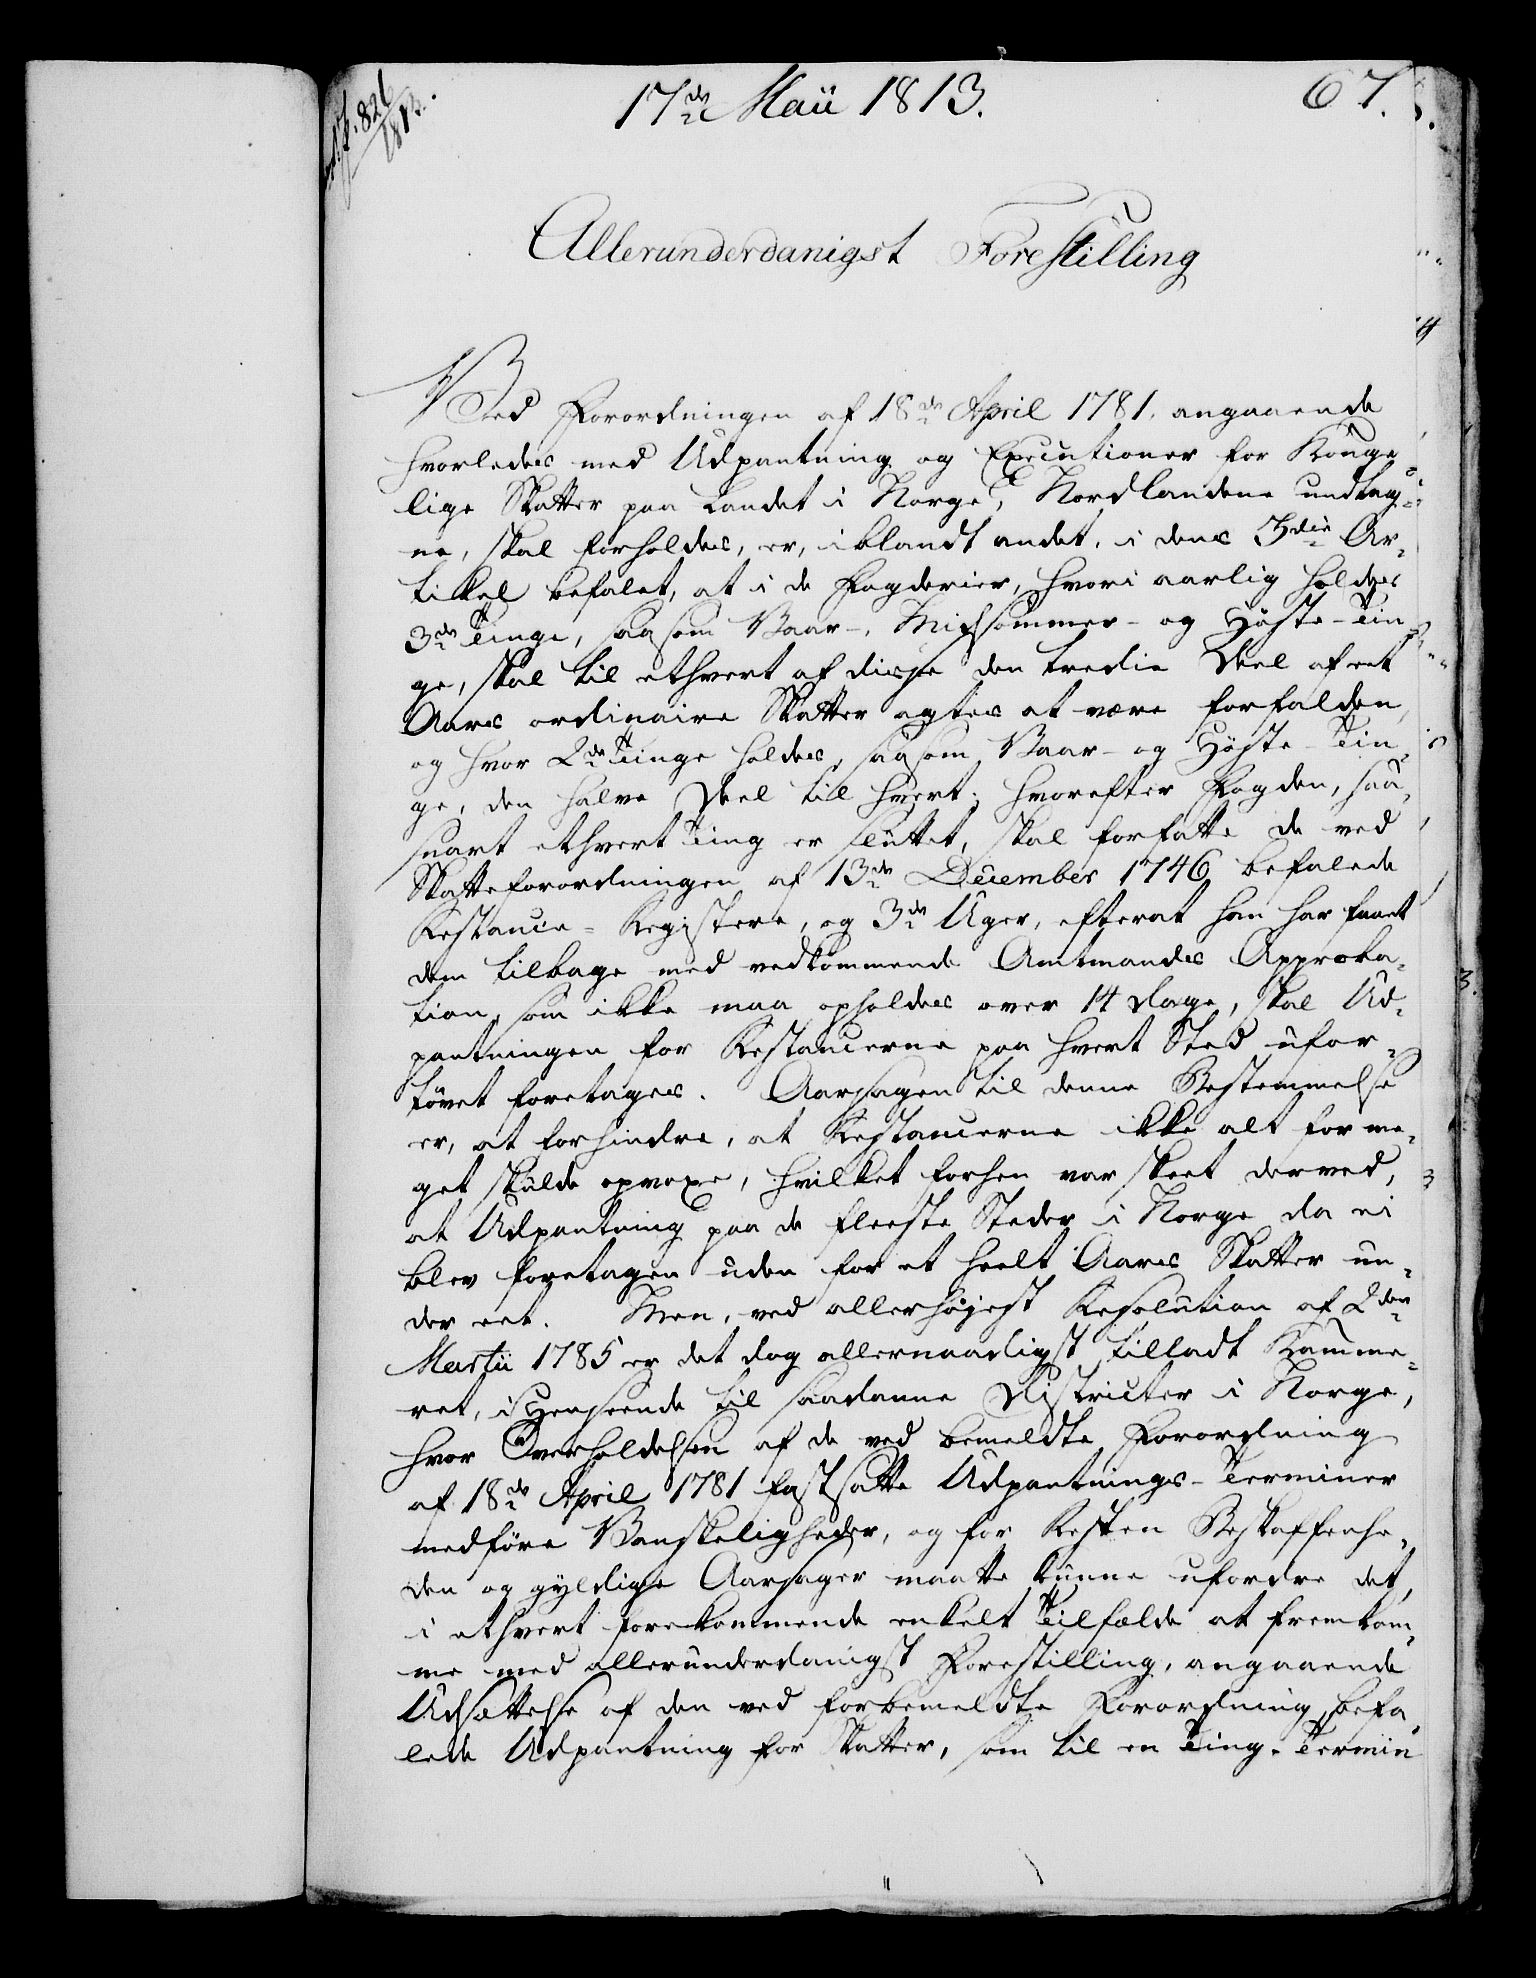 826
1813.
17de Maii 1813.
67.
Allerunderdanigst Forestilling
Ved Forordningen af 18de April 1781, angaaende
hvorledes med Udpantning og Executioner for Konge-
lige Skatter paa Landet i Norge, Nordlandene undtag-
ne, skal forholdes, er, iblandt andet, i dens 3die Ar-
tikel befalet, at i de Fogderier, hvori aarlig holdes
3de Tinge, saasom Vaar-, Midsommer- og Höste-Tin-
ge, skal til ethvert af disse den tredie Deel af eet
Aars ordinaire Skatter agtes at være forfalden,
og hvor 2de Tinge holdes, saasom Vaar- og Höste-Tin-
ge, den halve Deel til hvert; hvorefter Fogden, saa
snart ethvert Ting er sluttet, skal forfatte de ved
Skatteforordningen af 13de December 1746 befalede
Restance-Registere, og 3de Uger, efterat han har faaet
dem tilbage med vedkommende Amtmands Approba-
tion, som ikke maa opholdes over 14 Dage, skal Ud-
pantningen for Restancerne paa hvert Sted ufor-
tövet foretages. Aarsagen til denne Bestemmelse
er, at forhindre, at Restancerne ikke alt for me-
get skulde opvoxe, hvilket forhen var skeet derved,
at Udpantning paa de fleeste Steder i Norge da ei
blev foretagen uden for et heelt Aars Skatter un-
der eet. Men, ved allerhöjest Resolution af 2den
Martii 1785 er det dog allernaadigst tilladt Kamme-
ret, i Henseende til saadanne Districter i Norge,
hvor Overholdelsen af de ved bemeldte Forordning
af 18de April 1781 fastsatte Udpantnings-Terminer
medföre Vanskeligheder, og for Resten Beskaffenhe-
den og gyldige Aarsager maatte kunne udfordre det,
i ethvert forekommende enkelt Tilfælde at fremkom-
me med allerunderdanigst Forestilling, angaaende
Udsættelse af den ved forbemeldte Forordning befa-
lede Udpantning for Skatter, som til en Ting-Termin